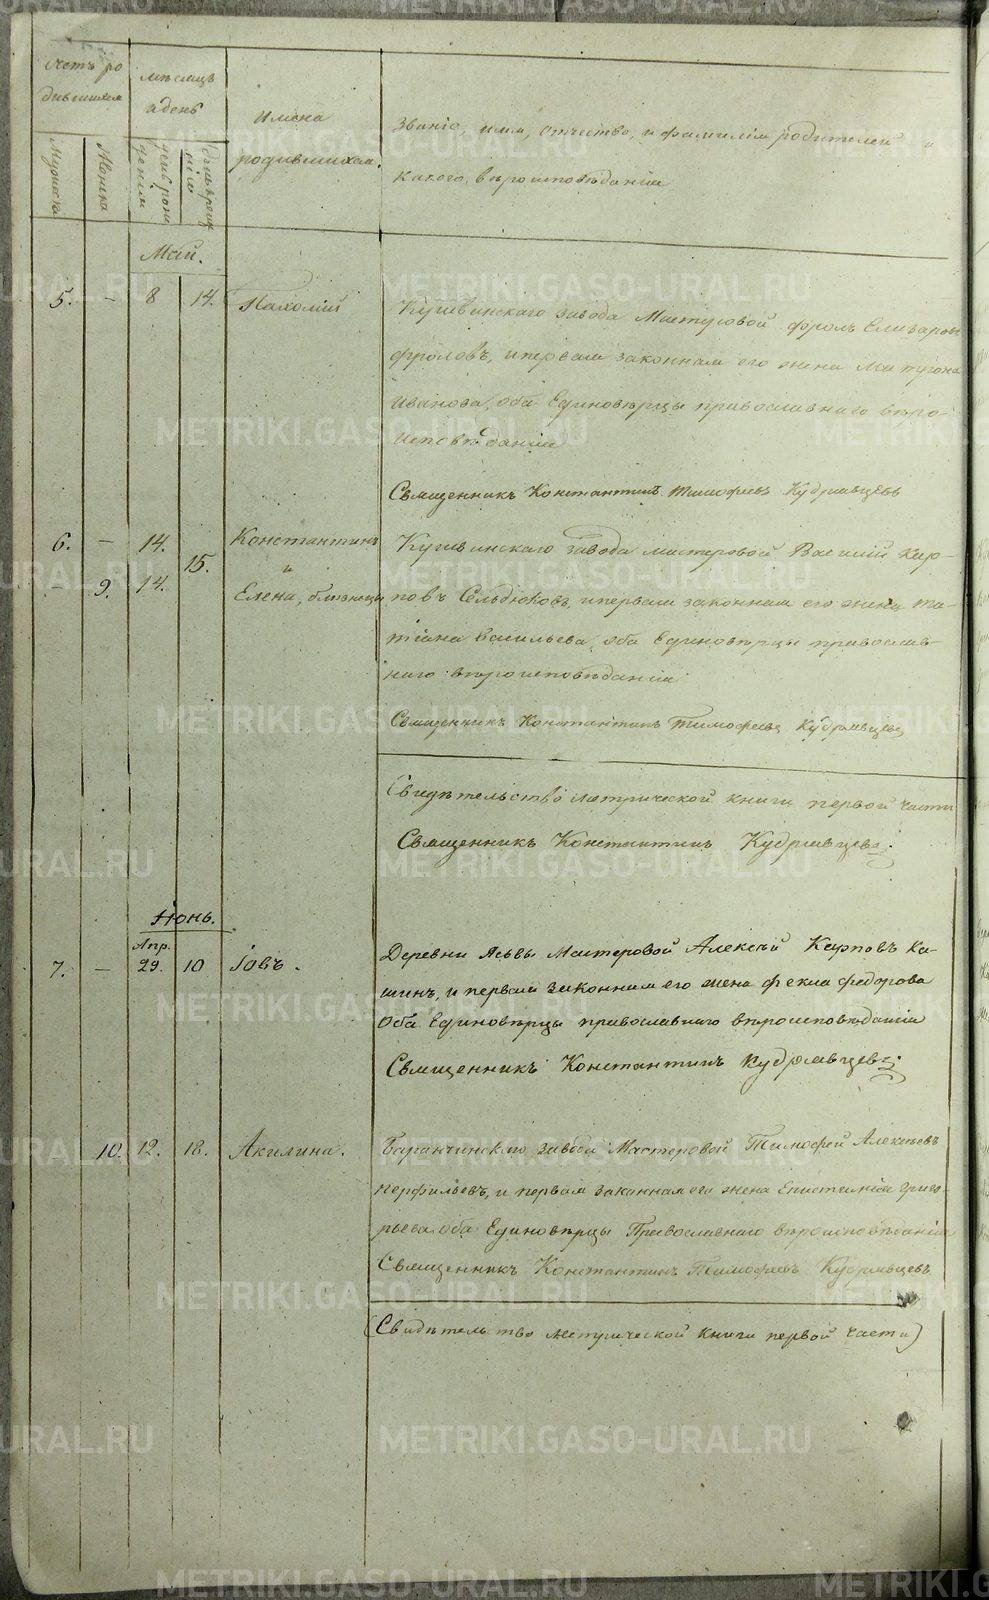 Счетъ ро
дившихся
мѣсяцъ
и день
Имена
родившихся.
Званіе, имя, отчество, и фамилія родителей и
какого вѣроисповѣданія
Мужеска
Женска
день рож
денія
день крещ
нія
Май.
5. — 8 14. Пахомій
Кушвинскаго завода Мастеровой Фролъ Елизаровъ
Фроловъ, и первая законная его жена Матрона
Иванова, оба Единовѣрцы православнаго вѣро-
исповѣданія
Священникъ Константинъ Тимофеевъ Кудрявцевъ
6. — 14. Константинъ
15. и
— 9. 14. Елена, близнецы
Кушвинскаго завода мастеровой Василій Кар-
повъ Сельдюковъ, и первая законная его жена Та-
тіана Васильева, оба Единовѣрцы православ-
наго вѣроисповѣданія
Священникъ Константинъ Тимофеевъ Кудрявцевъ
Свидѣтельство метрической книги первой части
Священникъ Константинъ Кудрявцевъ.
Іюнь.
Апр.
7. — 29. 10 Іовъ.
Деревни Ясьвы Мастеровой Алексѣй Карповъ Ка-
шинъ, и первая законная его жена Фекла Федорова
Оба Единовѣрцы православнаго вѣроисповѣданія
Священникъ Константинъ Кудрявцевъ.
10. 12. 18. Акилина.
Баранчинскаго завода Мастеровой Тимофей Алексѣевъ
Перфильевъ, и первая законная его жена Епистимія Григо-
рьева оба Единовѣрцы Православнаго вѣроисповѣданія
Священникъ Константинъ Тимофеевъ Кудрявцевъ
(Свидѣтельство метрической книги первой части)
METRIKI.GASO-URAL.RU